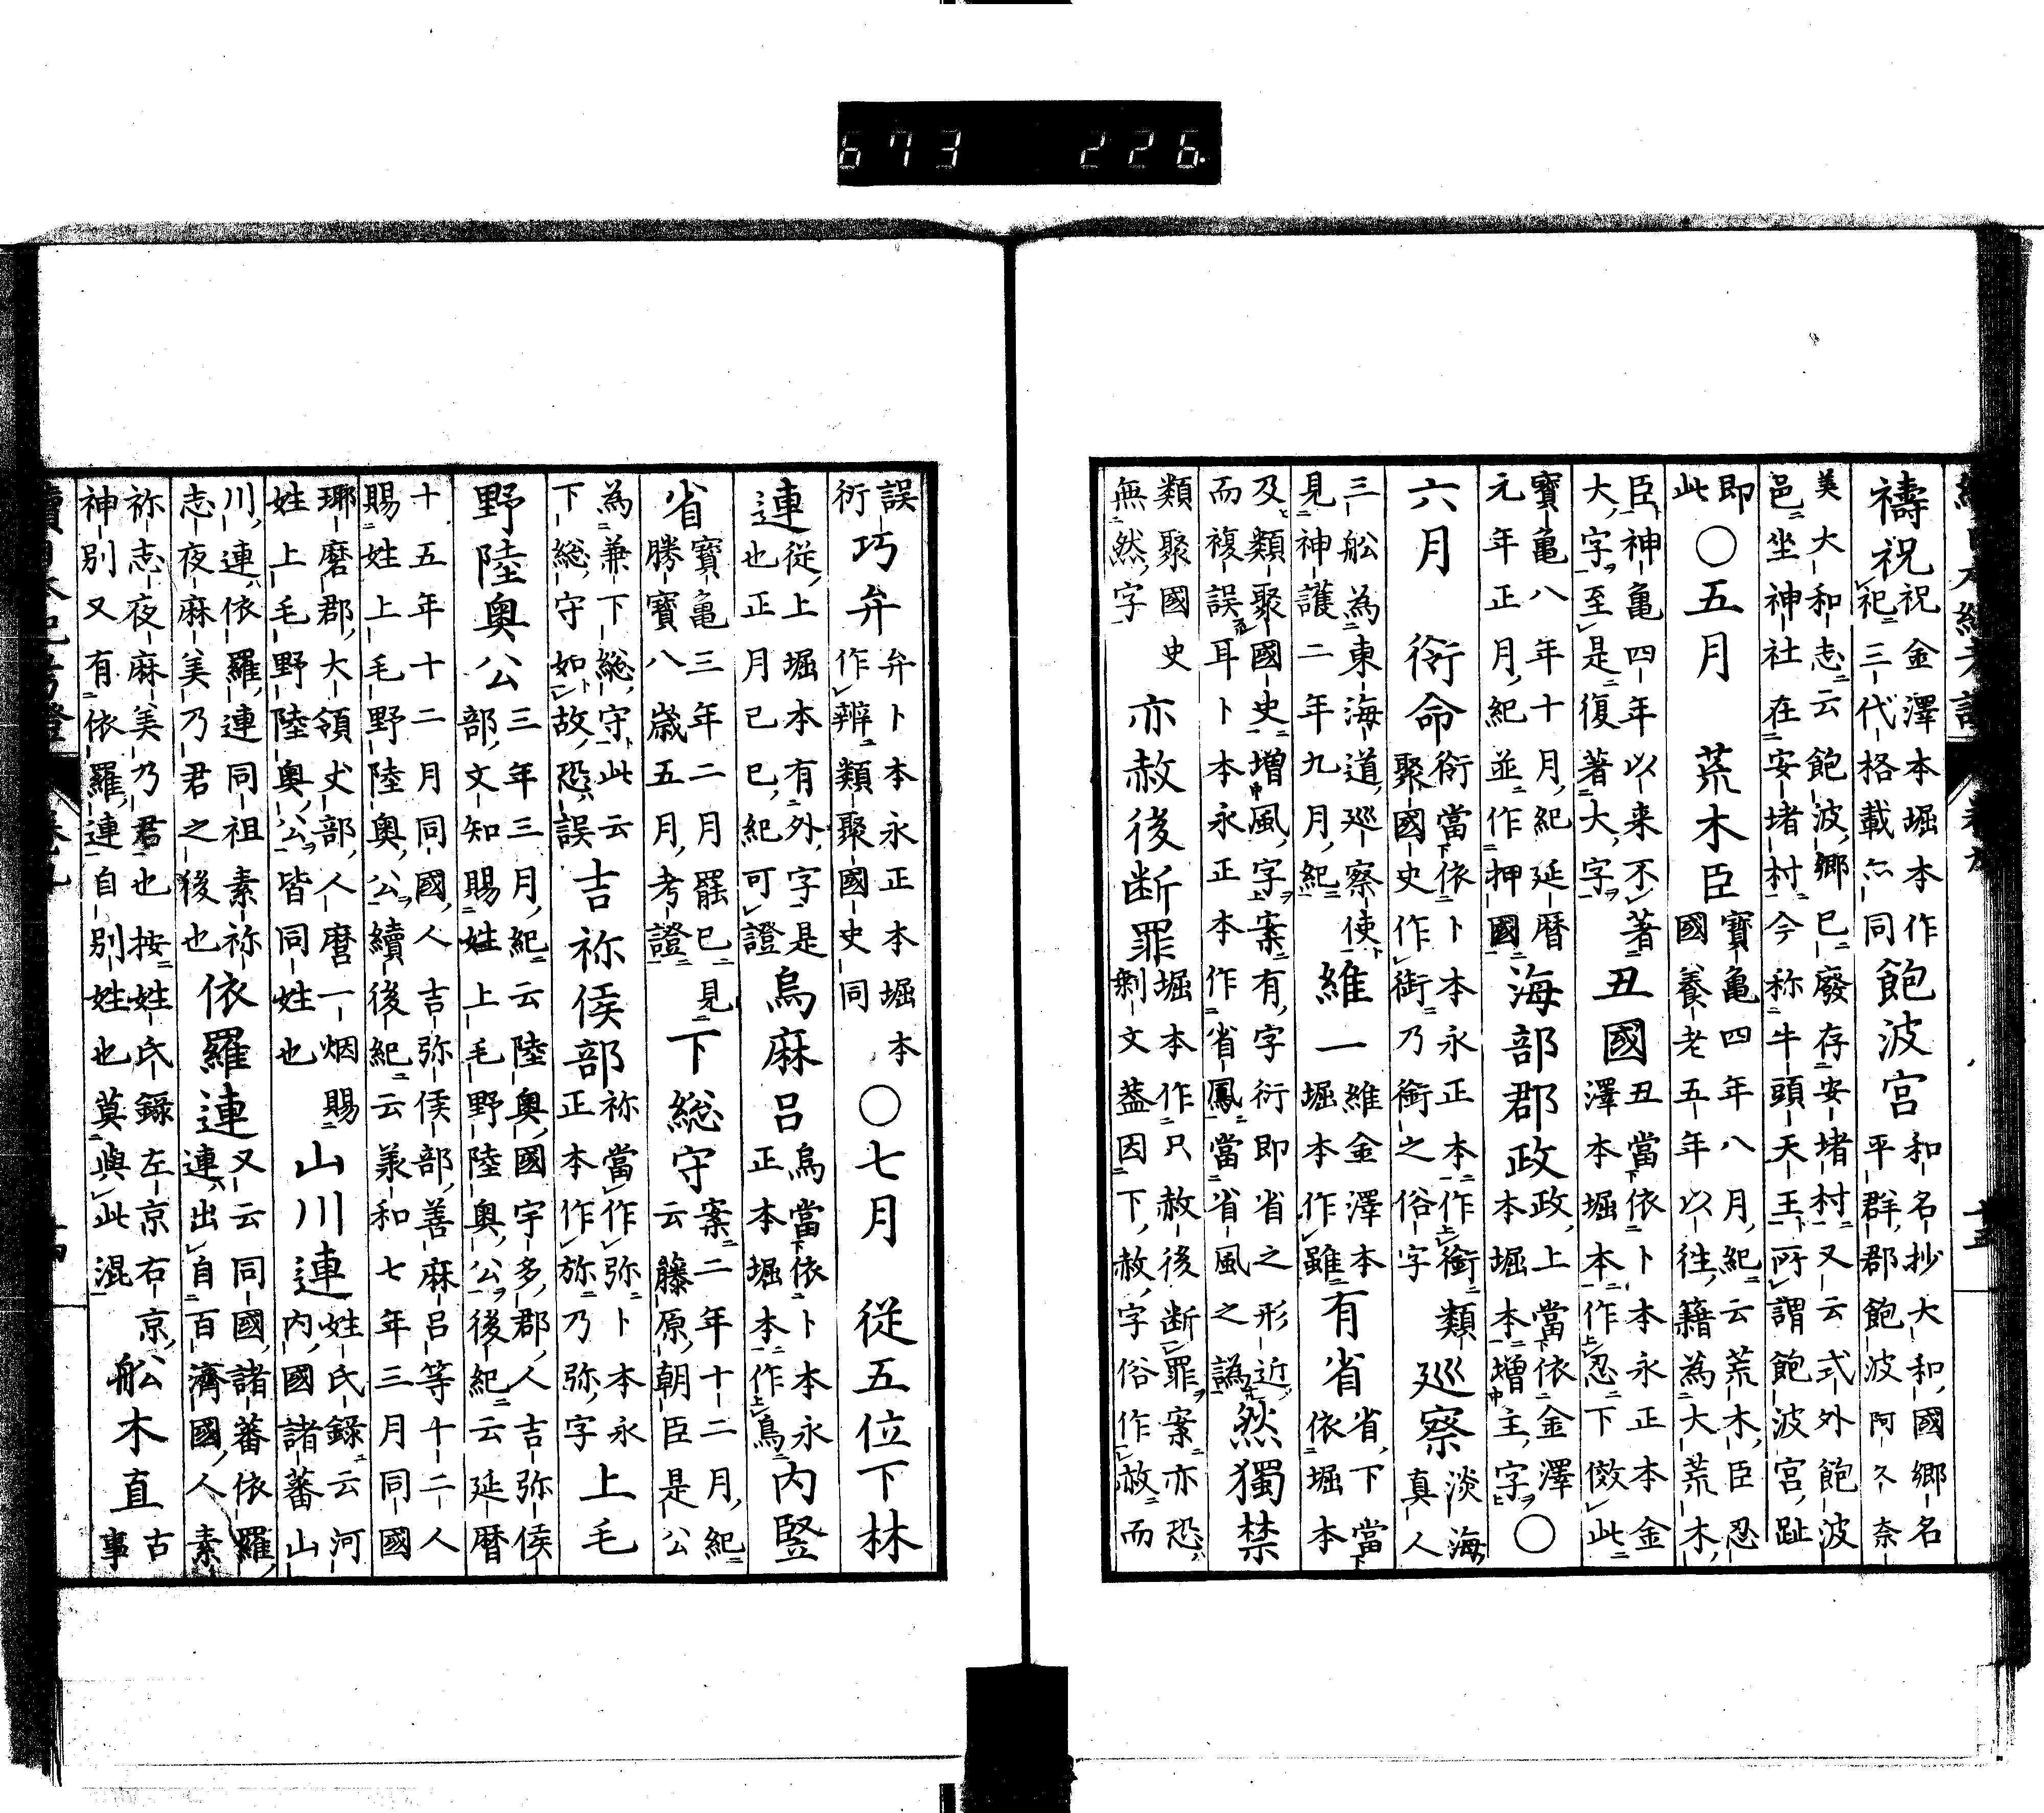 673 226
禱祝祝金澤本堀本作祀三代格載亦同飽波宮和名抄大和國鄉名平群郡飽波阿久奈
美大和志云飽波鄉已廢存安堵村又云式外飽波邑坐神社在安堵村今称牛頭天王所謂飽波宮趾
即此〇五月荒木臣寶亀四年八月紀云荒木臣忍國養老五年以往籍為大荒木
臣神亀四年以来不著大字至是復著大字丑國丑當依卜本永正本金澤本堀本作忍下傚此
寶亀八年十月紀延暦元年正月紀並作押國海部郡政政上當依金澤本堀本增主字〇
六月衔命衔當依卜本永正本作銜類聚國史作衘乃銜之俗字巡察淡海真人
三舩為東海道巡察使見神護二年九月紀維一維金澤本堀本作雖有省省下當依堀本
及類聚國史增風字案有字衍即省之形近而複誤耳卜本永正本作省鳳當省風之譌然獨禁
類聚國史無然字亦赦後断罪堀本作只赦後断罪案亦恐剩文蓋因下赦字俗作赦而
誤衍巧弁弁卜本永正本堀本作辨類聚國史同〇七月從五位下林
連從上堀本有外字是也正月己巳紀可證烏麻呂烏當依卜本永正本堀本作鳥内竪
省寶亀三年二月罷已見勝寶八歲五月考證下総守案二年十二月紀云藤原朝臣是公
為兼下総守此云下総守如故恐誤吉祢侯部祢當作弥卜本永正本作㫆乃弥字上毛
野陸奥公三年三月紀云陸奥國宇多郡人吉弥侯部文知賜姓上毛野陸奥公後紀云延暦
十五年十二月同國人吉弥侯部善麻呂等十二人賜姓上毛野陸奥公續後紀云羕和七年三月同國
瑘磨郡大領丈部人麿一烟賜姓上毛野陸奥公皆同姓也山川連姓氏録云河内國諸蕃山
川連依羅連同祖素祢志夜麻美乃君之後也依羅連又云同國諸蕃依羅連出自百濟國人素
祢志夜麻美乃君也按姓氏錄左京右京神別又有依羅連自別姓也莫與此混舩木直古事